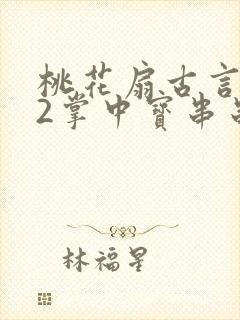 桃花扇古言
2掌中寶串
林福星